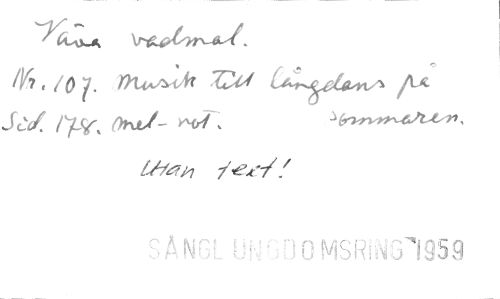 Väva vadmal.
Nr. 107. Musik till långdans på
Sid. 178. mel-not. sommaren.
Utan text!
SÅNGL UNGDOMSRING 1959